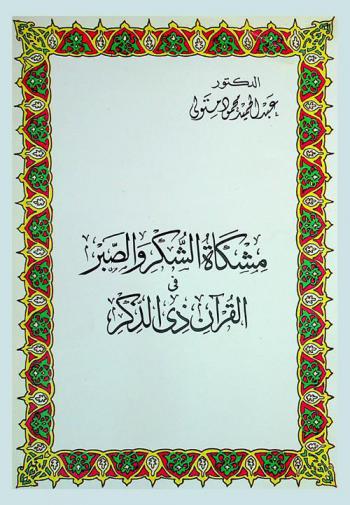 الدكتور
عبد الحميد محمود متولى
مشكاة الشكر والصبر
فى
القرآن ذى الذكر